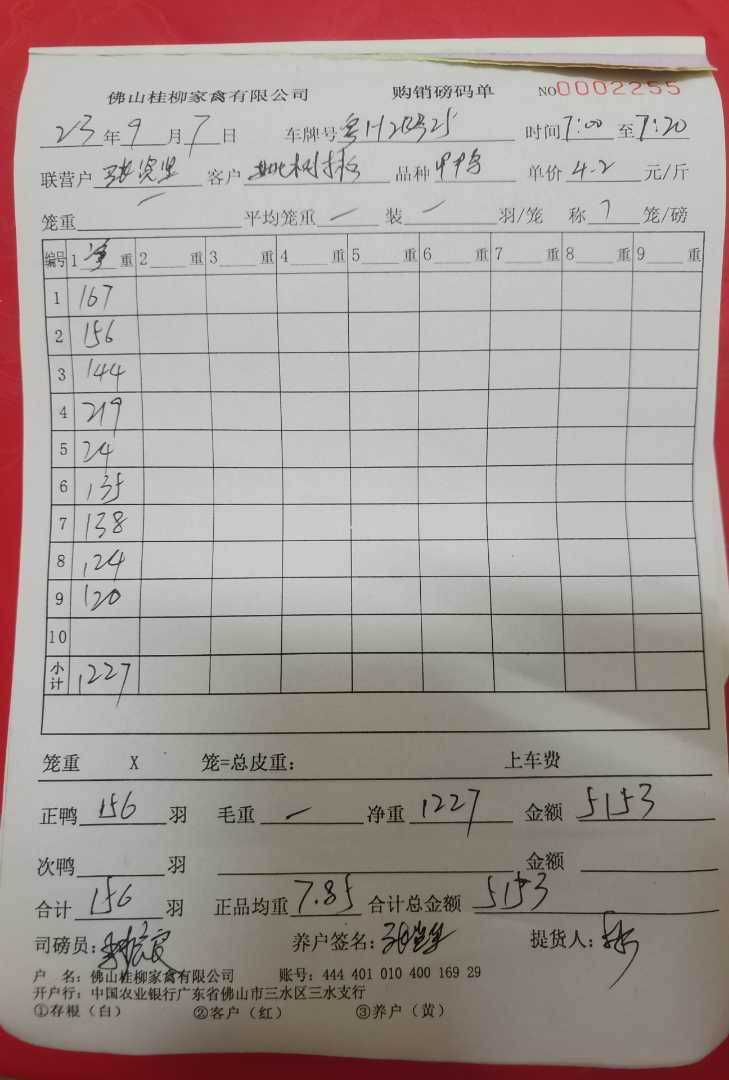 佛山桂柳家禽有限公司 购销磅码单 NO0002255
23年9月7日 车牌号粤H 时间7:00至7:20
联营户 客户 品种 单价4.2元/斤
笼重 — 平均笼重 — 装 — 羽/笼 称 笼/磅
编号 1净重 2 重 3 重 4 重 5 重 6 重 7 重 8 重 9 重
1 167
2 156
3 144
4 219
5 24
6 135
7 138
8 124
9 120
10
小计 1227
笼重 X 笼=总皮重: 上车费
正鸭156羽 毛重 — 净重1227 金额5153
次鸭 羽 金额
合计156羽 正品均重7.85 合计总金额5153
司磅员: 养户签名: 提货人:
户 名: 佛山桂柳家禽有限公司 账号: 444 401 010 400 169 29
开户行: 中国农业银行广东省佛山市三水区三水支行
①存根(白) ②客户(红) ③养户(黄)